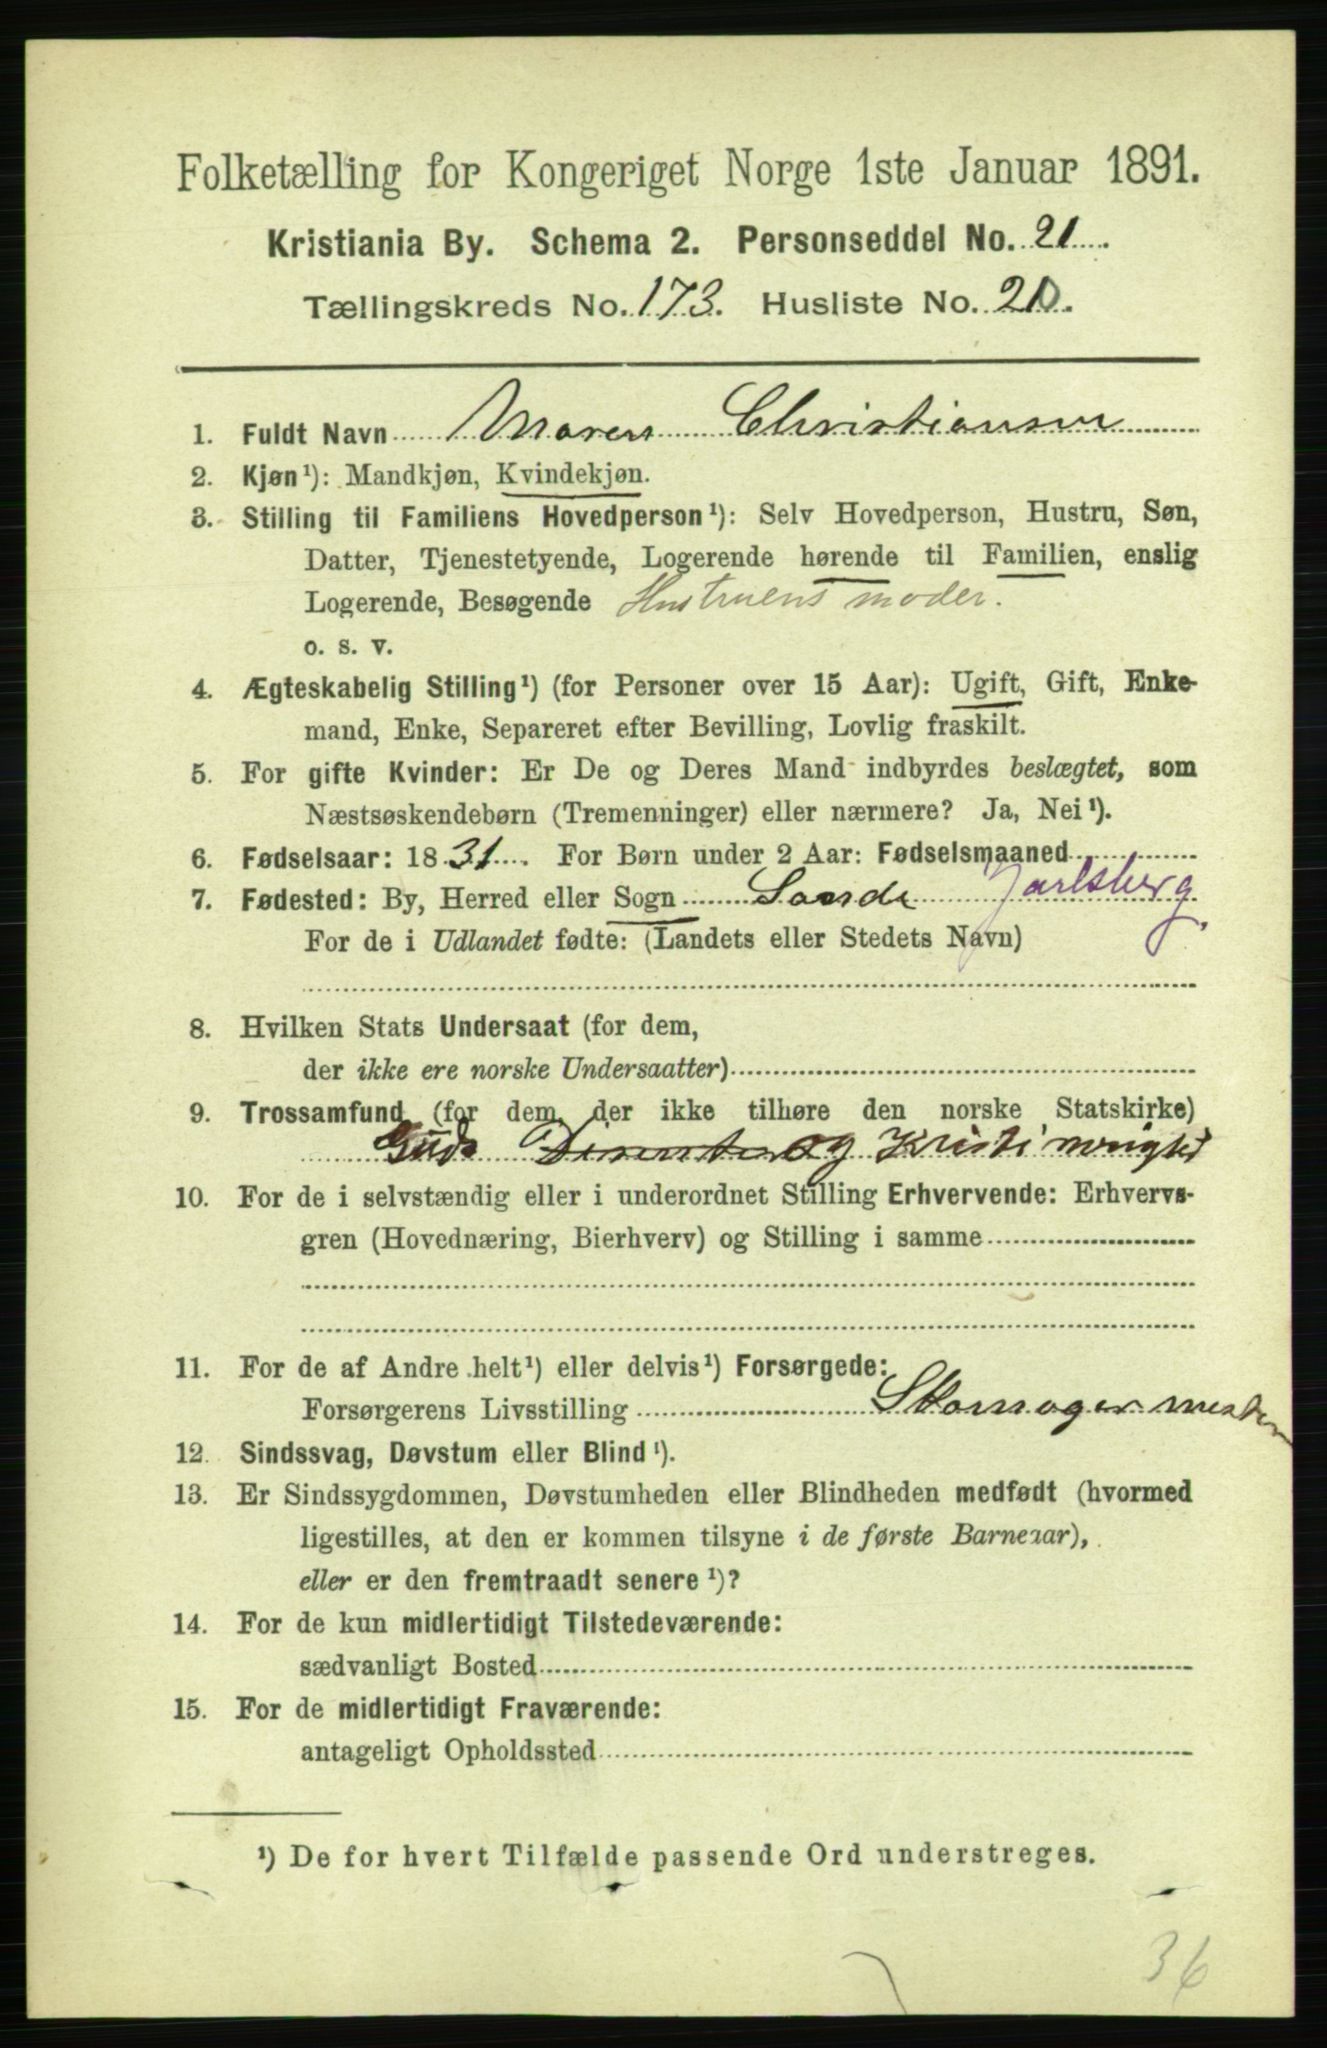 Folketælling for Kongeriget Norge 1ste Januar 1891.
Kristiania By. Schema 2. Personseddel No. 21
Tællingskreds No. 173. Husliste No. 20.
1. Fuldt Navn Maren Christiansen
2. Kjøn¹): Mandkjøn, Kvindekjøn.
3. Stilling til Familiens Hovedperson¹): Selv Hovedperson, Hustru, Søn,
Datter, Tjenestetyende, Logerende hørende til Familien, enslig
Logerende, Besøgende Hustruens moder.
o. s. v.
4. Ægteskabelig Stilling¹) (for Personer over 15 Aar): Ugift, Gift, Enke-
mand, Enke, Separeret efter Bevilling, Lovlig fraskilt.
5. For gifte Kvinder: Er De og Deres Mand indbyrdes beslægtet, som
Næstsøskendebørn (Tremenninger) eller nærmere? Ja, Nei¹).
6. Fødselsaar: 1831. For Børn under 2 Aar: Fødselsmaaned
7. Fødested: By, Herred eller Sogn Sande Jarlsberg.
For de i Udlandet fødte: (Landets eller Stedets Navn)
8. Hvilken Stats Undersaat (for dem,
der ikke ere norske Undersaatter)
9. Trossamfund (for dem, der ikke tilhøre den norske Statskirke)
Guds Disenter og Kristi
10. For de i selvstændig eller i underordnet Stilling Erhvervende: Erhvervs-
gren (Hovednæring, Bierhverv) og Stilling i samme
11. For de af Andre helt¹) eller delvis¹) Forsørgede:
Forsørgerens Livsstilling Skomager mester
12. Sindssvag, Døvstum eller Blind¹).
13. Er Sindssygdommen, Døvstumheden eller Blindheden medfødt (hvormed
ligestilles, at den er kommen tilsyne i de første Barneaar),
eller er den fremtraadt senere¹)?
14. For de kun midlertidigt Tilstedeværende:
sædvanligt Bosted
15. For de midlertidigt Fraværende:
antageligt Opholdssted
¹) De for hvert Tilfælde passende Ord understreges.
36